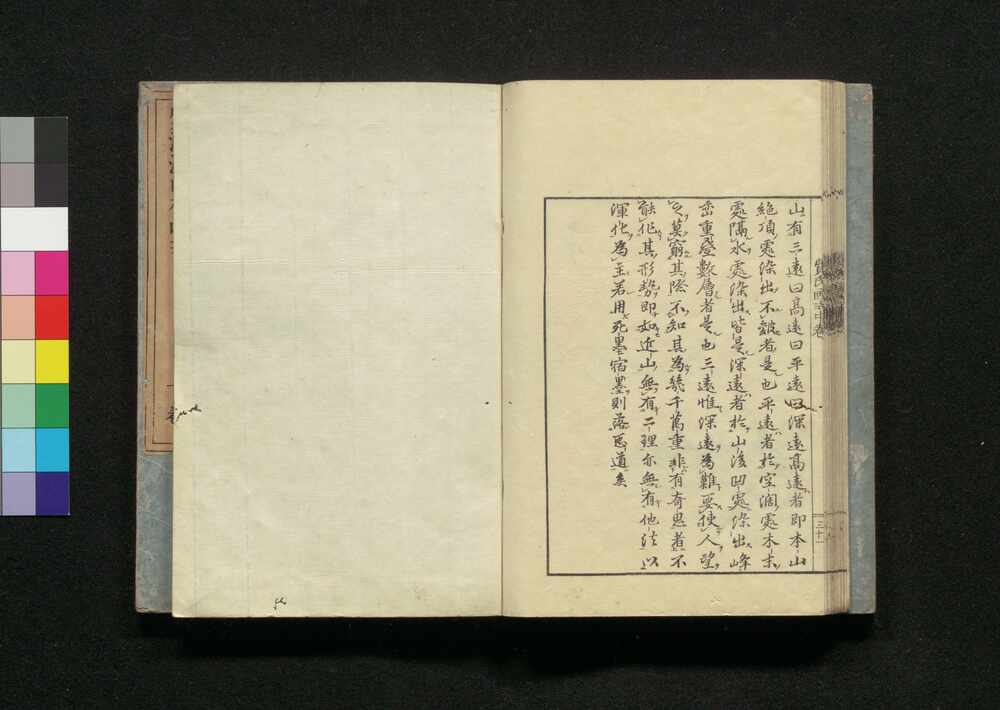 山有三遠曰高遠曰平遠曰深遠高遠者即本山
絶頂處染出不皴者是也平遠者於空濶處木末
處隔水處染出皆是深遠者於山後凹處染出峰
巒重疊數層者是也三遠惟深遠為難要使人望
之莫窮其際不知其為幾千萬重非有奇思者不
能作其形勢即如近山無有二理亦無有他法以
渾化為主若用死墨宿墨則落惡道矣
氏画
中卷
三十